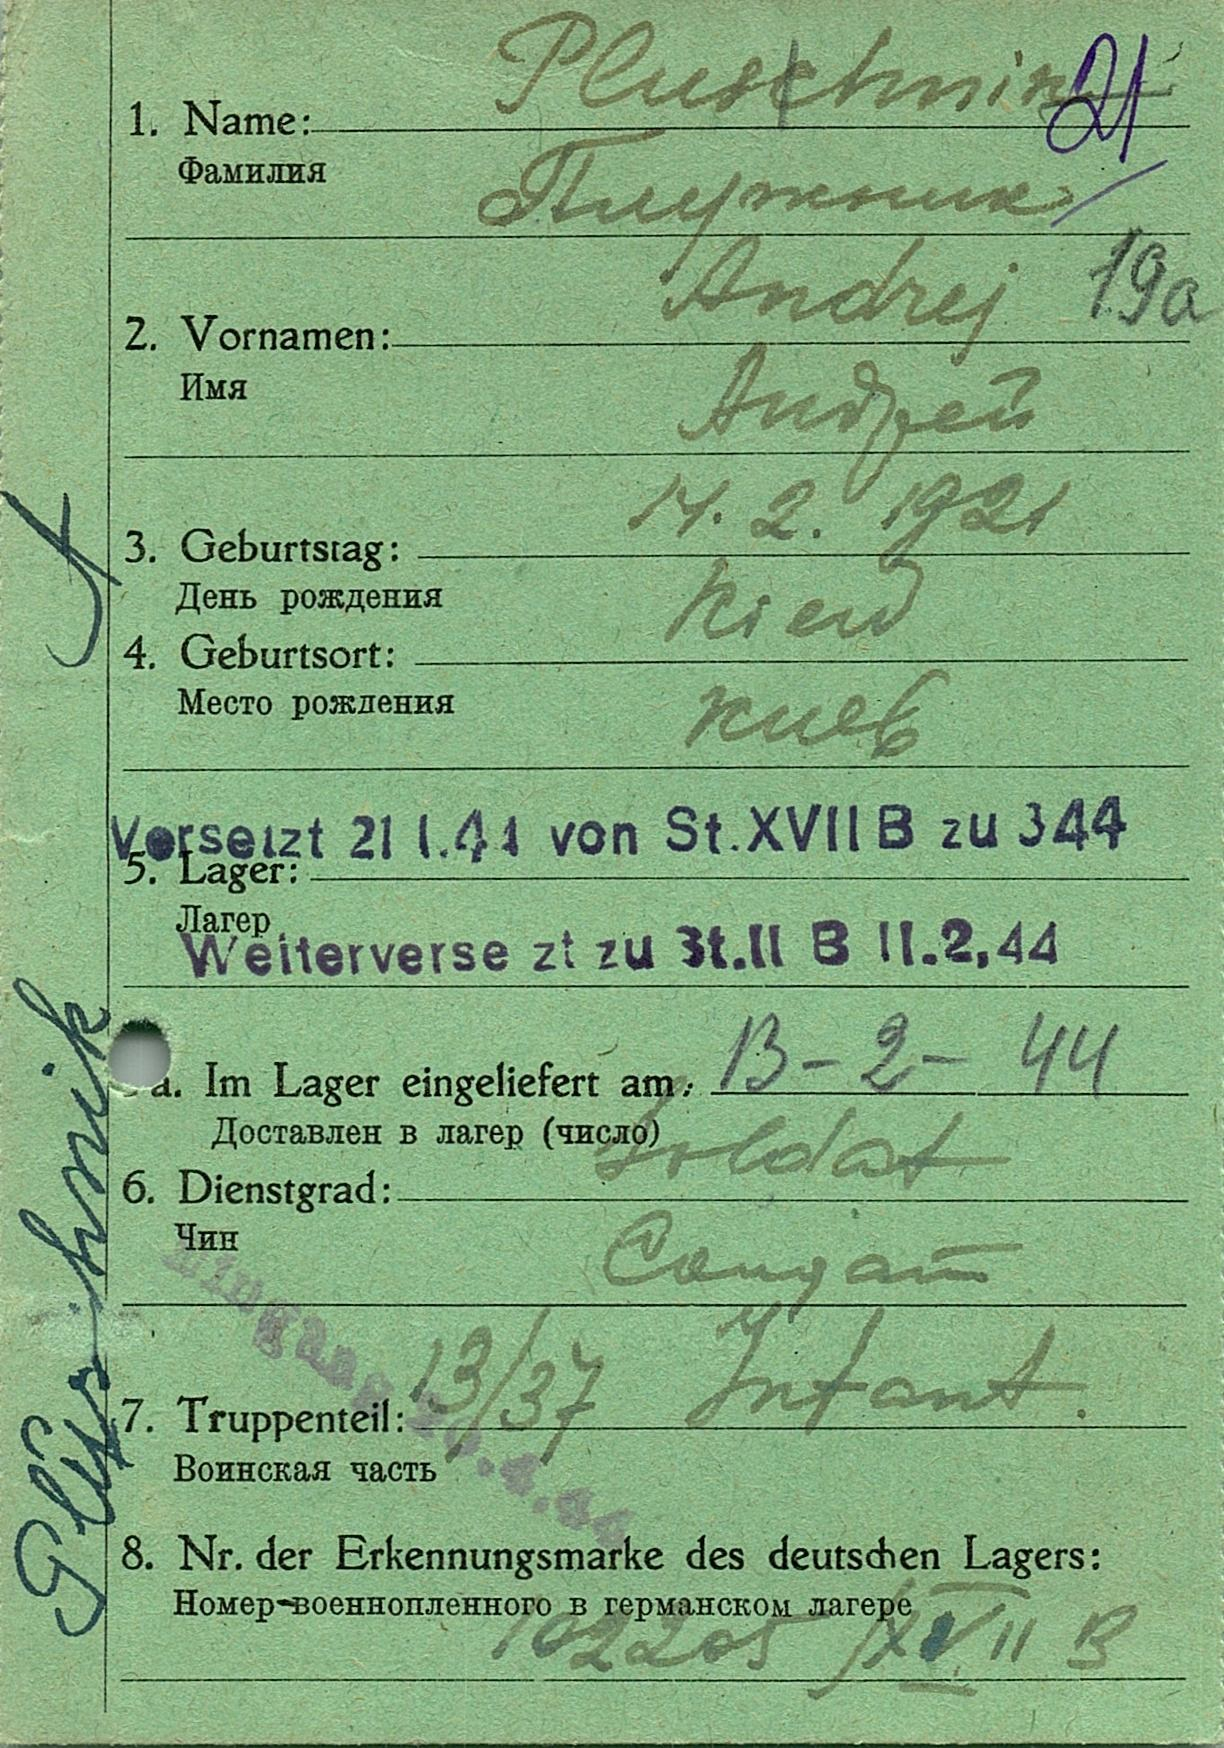 Pluschnik 21
1. Name:
Фамилия
Плужник
Andrej 19a
2. Vornamen:
Имя
Андрей
14. 2. 1921
3. Geburtstag:
День рождения
Kiew
4. Geburtsort:
Место рождения
Киев
Versetzt 21 1.44 von St.XVII B zu 344
5. Lager:
Лагер
Weiterverse zt zu St.II B 11.2.44
a. Im Lager eingeliefert am: 13-2-44
Доставлен в лагер (число)
Soldat
6. Dienstgrad:
Чин
Солдат
13/37 Infant.
7. Truppenteil:
Воинская часть
Eingang
8. Nr. der Erkennungsmarke des deutschen Lagers:
Номер военнопленного в германском лагере
102205 / XVII B